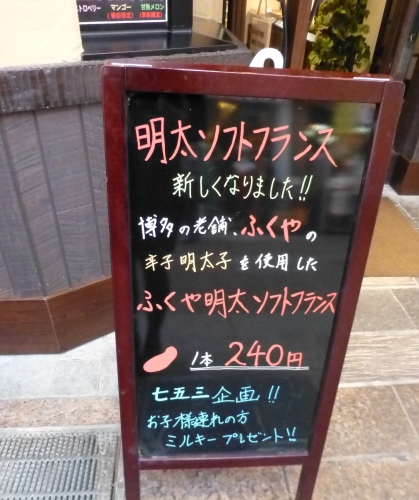 トロベリー マンゴー 甘熟メロン
(季節限定) (季節限定)
明太ソフトフランス
新しくなりました!!
博多の老舗、ふくやの
辛子明太子を使用した
ふくや明太ソフトフランス
1本 240円
七五三企画!!
お子様連れの方
ミルキープレゼント!!